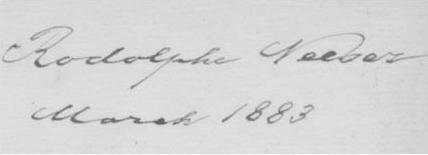 Rodolphe Neeser
March 1883